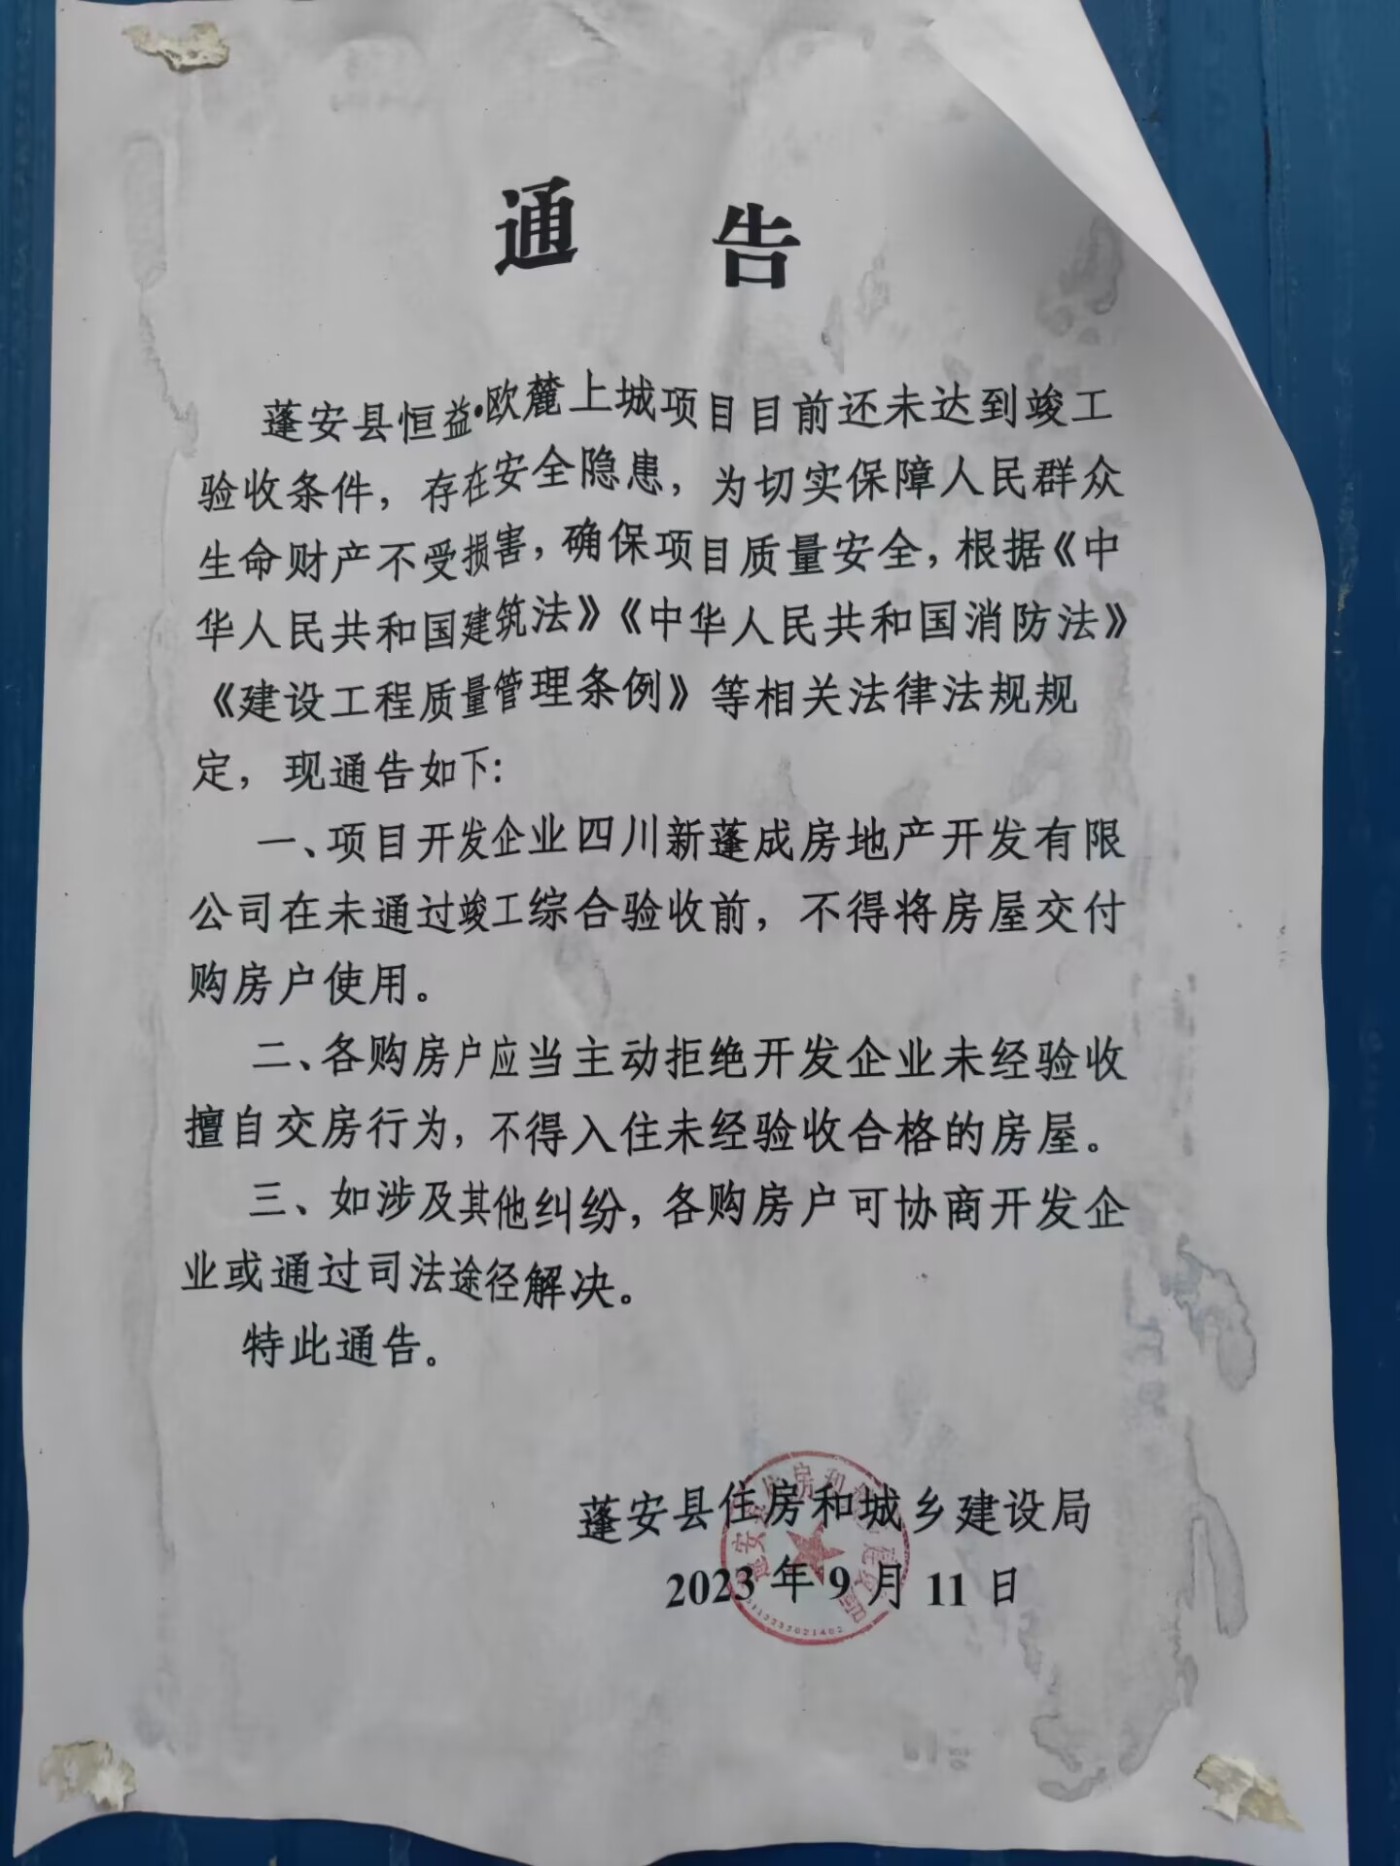 通 告
蓬安县恒益•欧麓上城项目目前还未达到竣工
验收条件，存在安全隐患，为切实保障人民群众
生命财产不受损害，确保项目质量安全，根据《中
华人民共和国建筑法》《中华人民共和国消防法》
《建设工程质量管理条例》等相关法律法规规
定，现通告如下：
一、项目开发企业四川新蓬成房地产开发有限
公司在未通过竣工综合验收前，不得将房屋交付
购房户使用。
二、各购房户应当主动拒绝开发企业未经验收
擅自交房行为，不得入住未经验收合格的房屋。
三、如涉及其他纠纷，各购房户可协商开发企
业或通过司法途径解决。
特此通告。
蓬安县住房和城乡建设局
2023 年 9 月 11 日